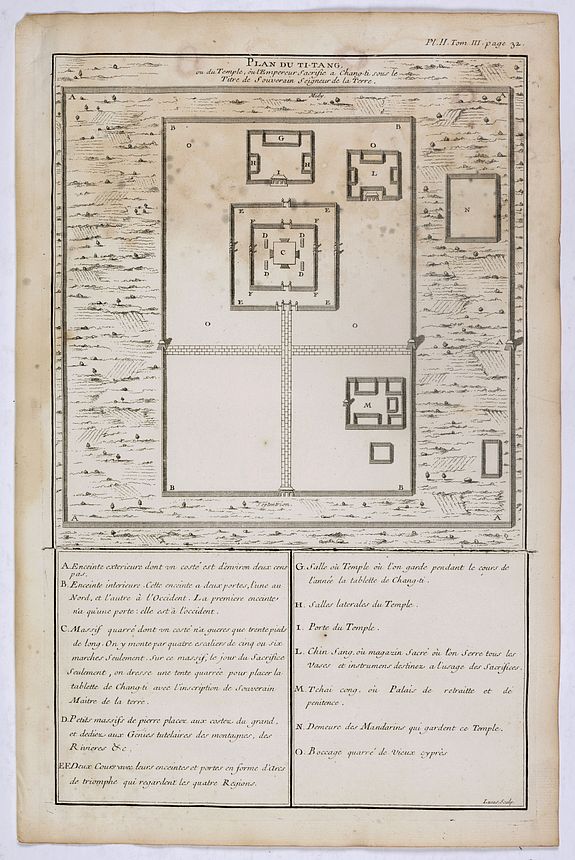 Pl. II. Tom III. page 32.
PLAN DU TI-TANG.
ou du Temple, où l'Empereur Sacrifie a Chang-ti sous le
Titre de Souverain Seigneur de la Terre.
Midy
A A
B B
O G O
H H
I L
N
E E
F F
D D
C
D D
F F
E E
O O
A
M
B B
Septentrion
A A
A. Enceinte exterieure dont un costé est d'environ deux cens
pas.
B. Enceinte interieure. Cette enceinte a deux portes, l'une au
Nord, et l'autre à l'Occident. La premiere enceinte
n'a qu'une porte: elle est à l'occident.
C. Massif quarré dont un costé n'a gueres que trente pieds
de long. On y monte par quatre escaliers de cinq ou six
marches Seulement. Sur ce massif, le jour du Sacrifice
Seulement, on dresse une tente quarrée pour placer la
tablette de Chang-ti avec l'inscription de Souverain
Maitre de la terre.
D. Petits massifs de pierre placez aux costez du grand,
et dediez aux Genies tutelaires des montagnes, des
Rivieres &c.
EF. Deux Cours avec leurs enceintes et portes en forme d'Arcs
de triomphe qui regardent les quatre Regions.
G. Salle où Temple où l'on garde pendant le cours de
l'année la tablette de Chang-ti.
H. Salles laterales du Temple.
I. Porte du Temple.
L. Chin Sang, où magazin Sacré où l'on Serre tous les
Vases et instrumens destinez a l'usage des Sacrifices.
M. Tchai cong, où Palais de retraitte et de
penitence.
N. Demeure des Mandarins qui gardent ce Temple.
O. Boccage quarré de vieux cyprès
Lucas Sculp.